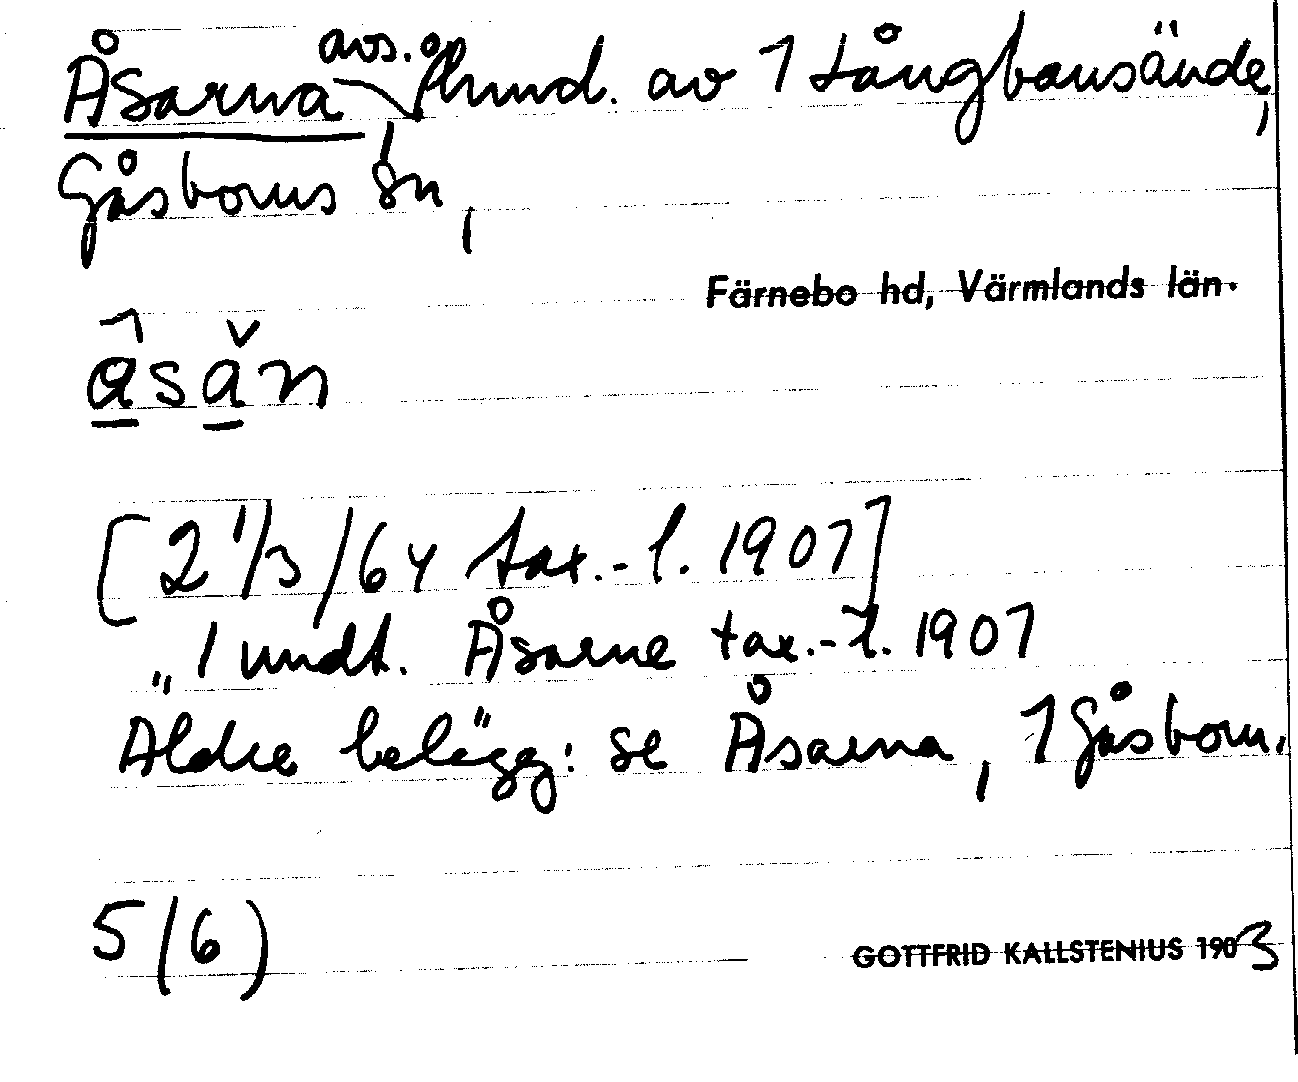 Åsarna avs. åhund. av 1 Långbansände,
Gåsborns sn,
Färnebo hd, Värmlands län.
âsăn
[2 1/3/64 tax.-l. 1907]
„ 1 undt. Åsarne tax.-l. 1907
Äldre belägg: se Åsarna, 1 Gåsborn.
5(6)
GOTTFRID KALLSTENIUS 1903